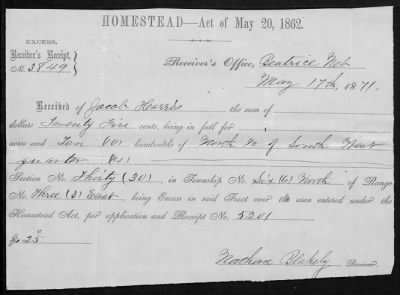 HOMESTEAD—Act of May 20, 1862.
EXCESS,
Receiver's Receipt,
No. 3849
Receiver's Office, Beatrice Neb
May 17th, 1871.
Received of Jacob Harris the sum of
dollars Twenty Five cents, being in full for
acres and Ten hundredths of North ½ of South West
quarter
Section No. Thirty (30), in Township No. Six (6) North, of Range
No. Three (3) East, being Excess in said Tract over the area entered under the
Homestead Act, per application and Receipt No. 5201
Nathan Blakely Receiver.